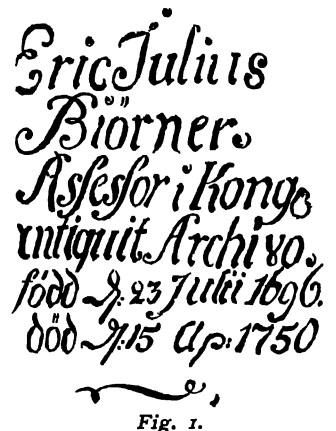 Eric Julius
Biörner.
Assessor i Kong.
Antiquit Archivo.
född d: 23 Julii 1696.
död d: 15 Ap: 1750
Fig. 1.